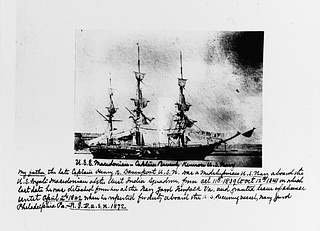 U.S.S. Macedonian - Captain Beverly Kennon U.S. Navy
My father, the late Captain Henry K. Davenport U.S.N. was a Midshipman U.S. Navy aboard the
U.S. frigate Macedonian of the West India Squadron, from Oct 11th 1839 to Oct 12th 1841 on which
last date he was detached from her at the Navy Yard Norfolk Va. and granted leave of absence
until April 2nd 1842 when he reported for duty aboard the U.S. Receiving vessel, Navy Yard
Philadelphia Pa. - R.G.D. U.S.N. 1892.